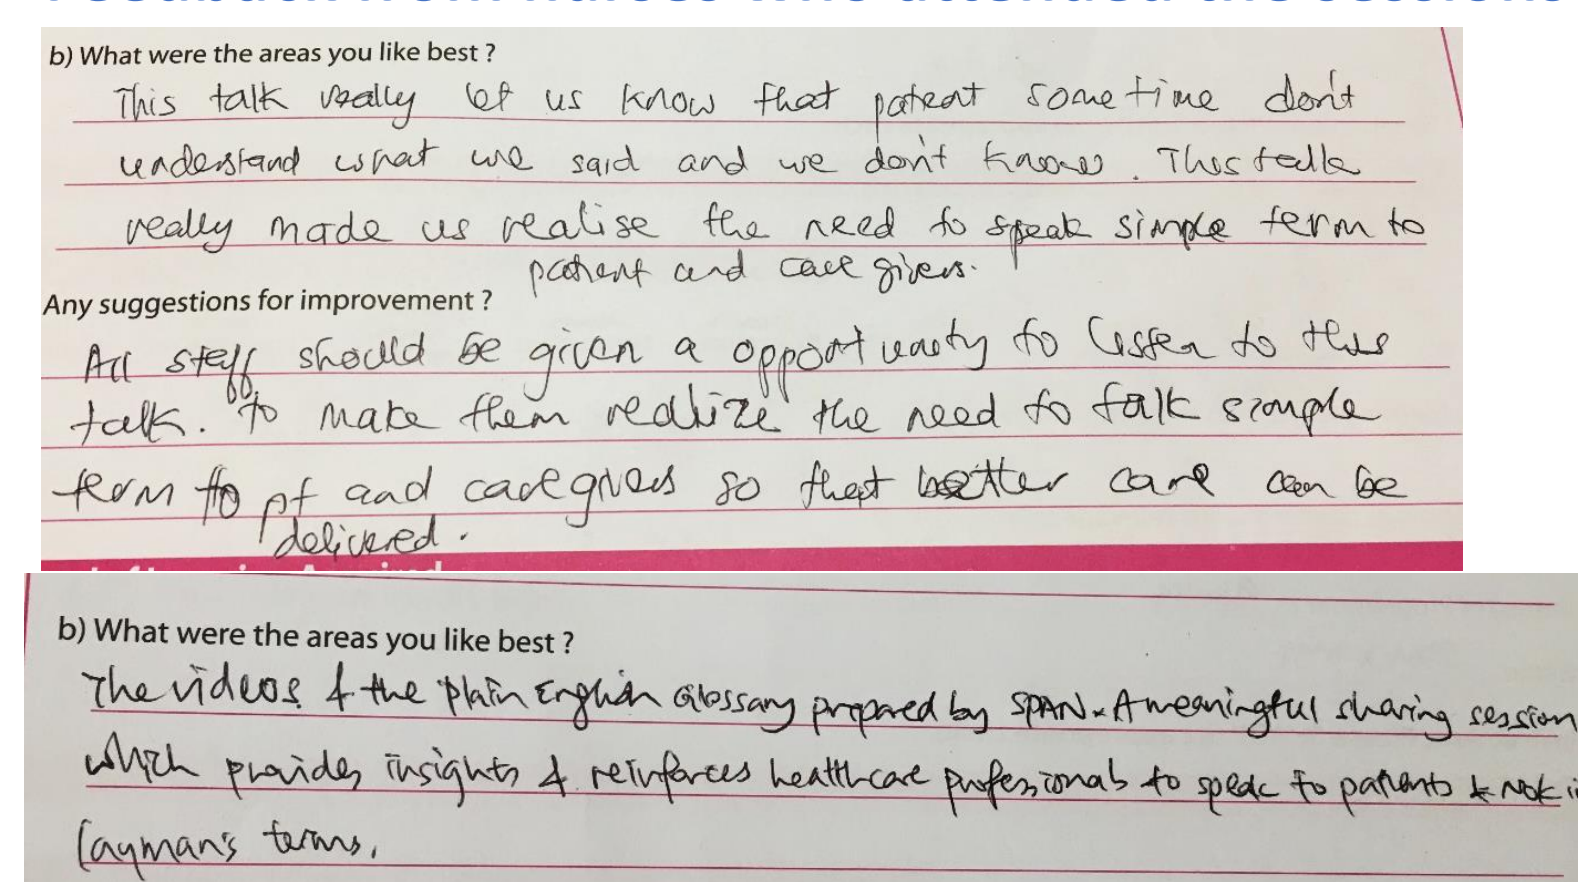 b) What were the areas you like best ?
This talk really let us know that patient some time don't
understand what we said and we don't know. This talk
really made us realise the need to speak simple term to
patient and care givers.
Any suggestions for improvement ?
All staff should be given a opportunity to listen to this
talk. To make them realize the need to talk simple
term to pt and care givers so that better care can be
delivered.
b) What were the areas you like best ?
The videos & the plain English Glossary prepared by SPAN. A meaningful sharing session
which provides insights & reinforces healthcare professionals to speak to patients & NOK i
layman's terms.